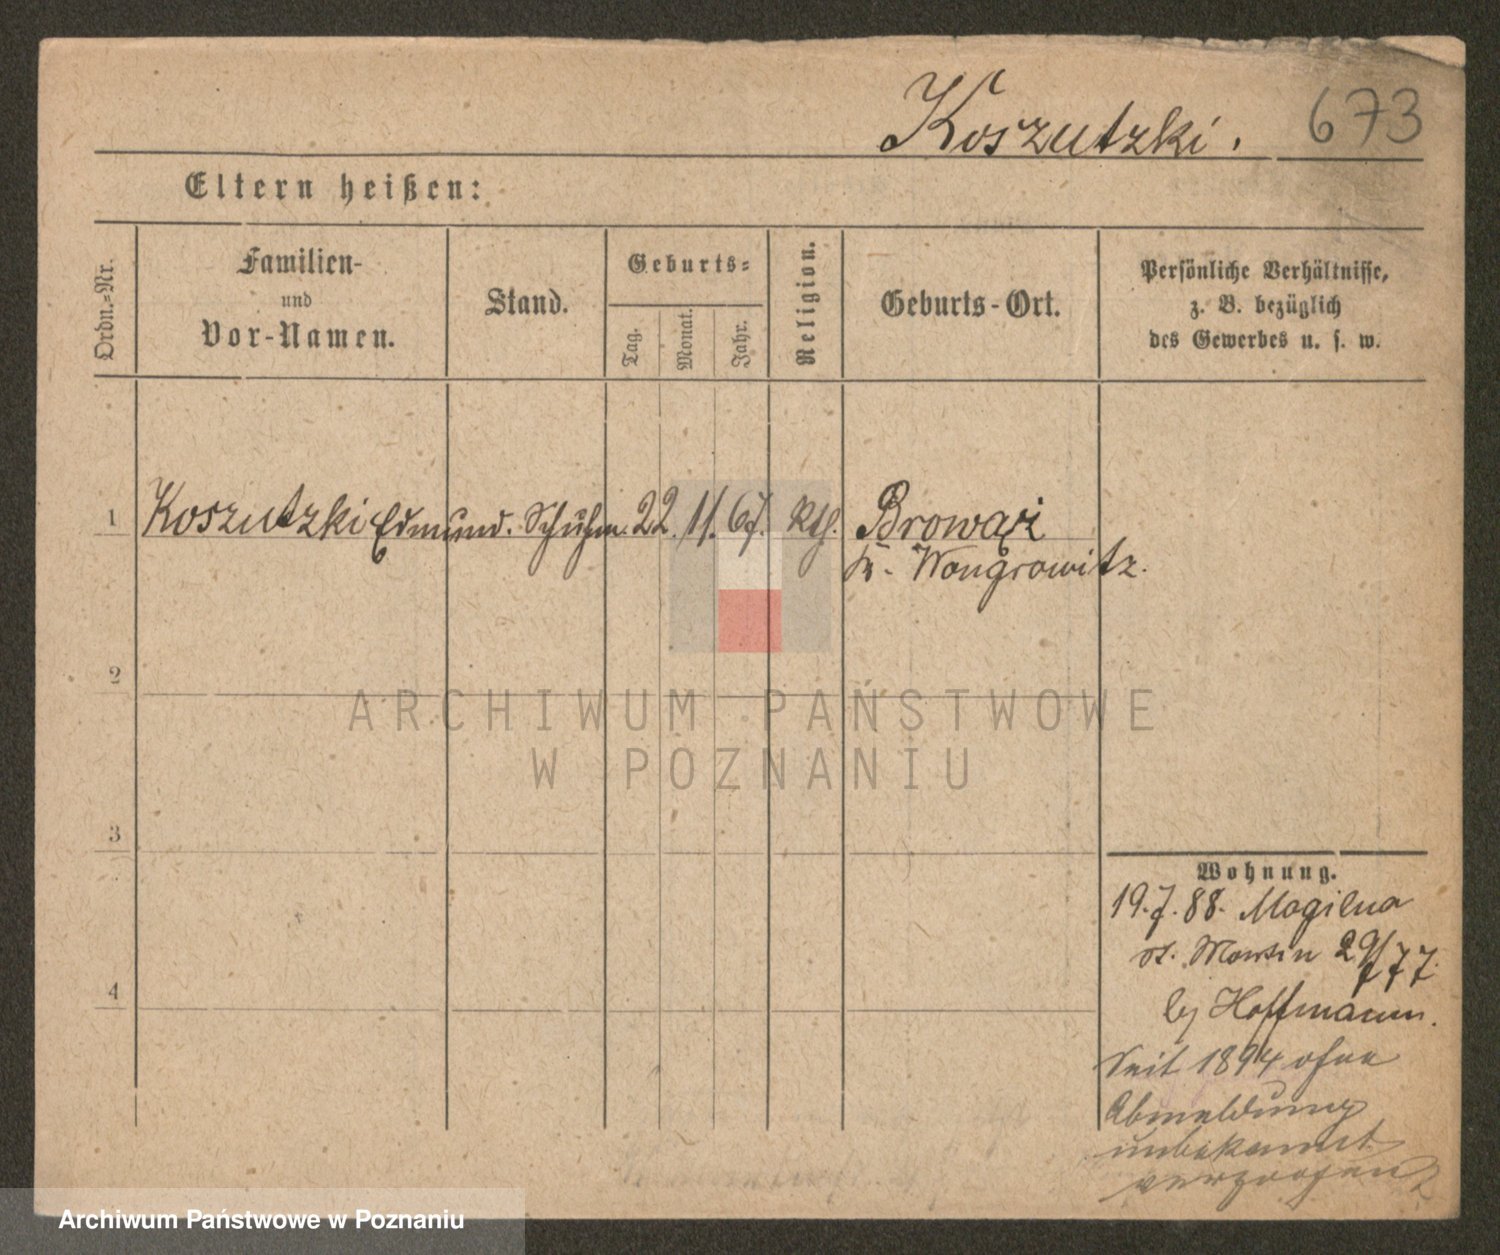 Koszutzki. 673
Eltern heißen:
Ordn.=Nr.
Familien-
und
Vor-Namen.
Stand.
Geburts=
Tag.
Monat.
Jahr.
Religion.
Geburts-Ort.
Persönliche Verhältnisse,
z. B. bezüglich
des Gewerbes u. s. w.
1 Koszutzki Edmund. Schuhm. 22. 11. 67. kth. Browarz
Kr. Wongrowitz.
2
ARCHIWUM PAŃSTWOWE
W POZNANIU
3
Wohnung.
19.7.88. Mogilna
St. Martin 29/
4
bej Hoffmann.
Seit 1894 ohne
Abmeldung
unbekannt
verzogen
Archiwum Państwowe w Poznaniu